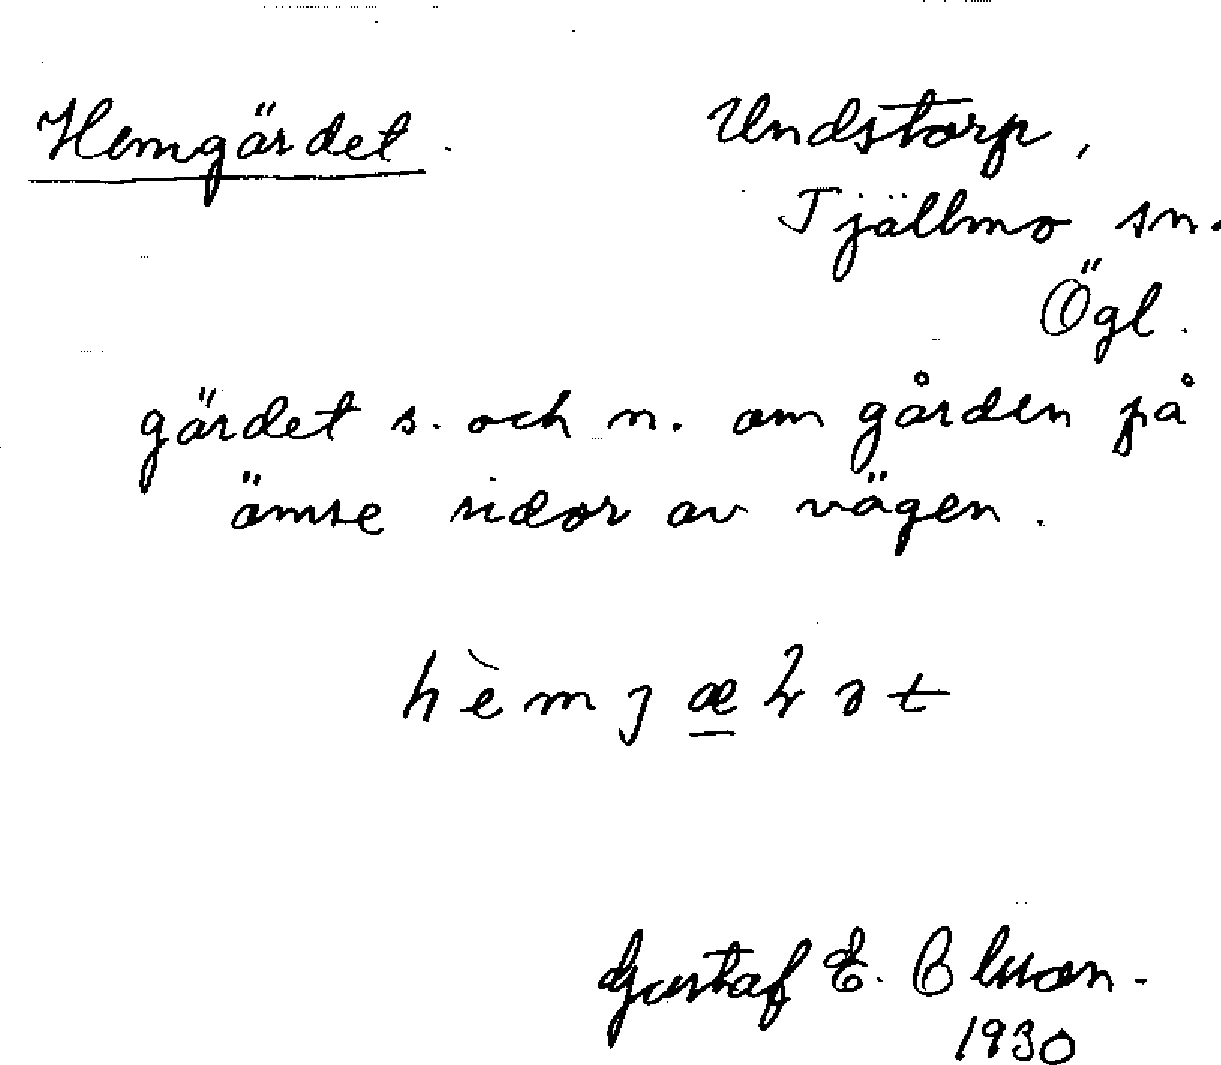 Hemgärdet. Undstorp,
Tjällmo sn.
Ögl.
gärdet s. och n. om gården på
ömse sidor av vägen.
Gustaf E.
1930